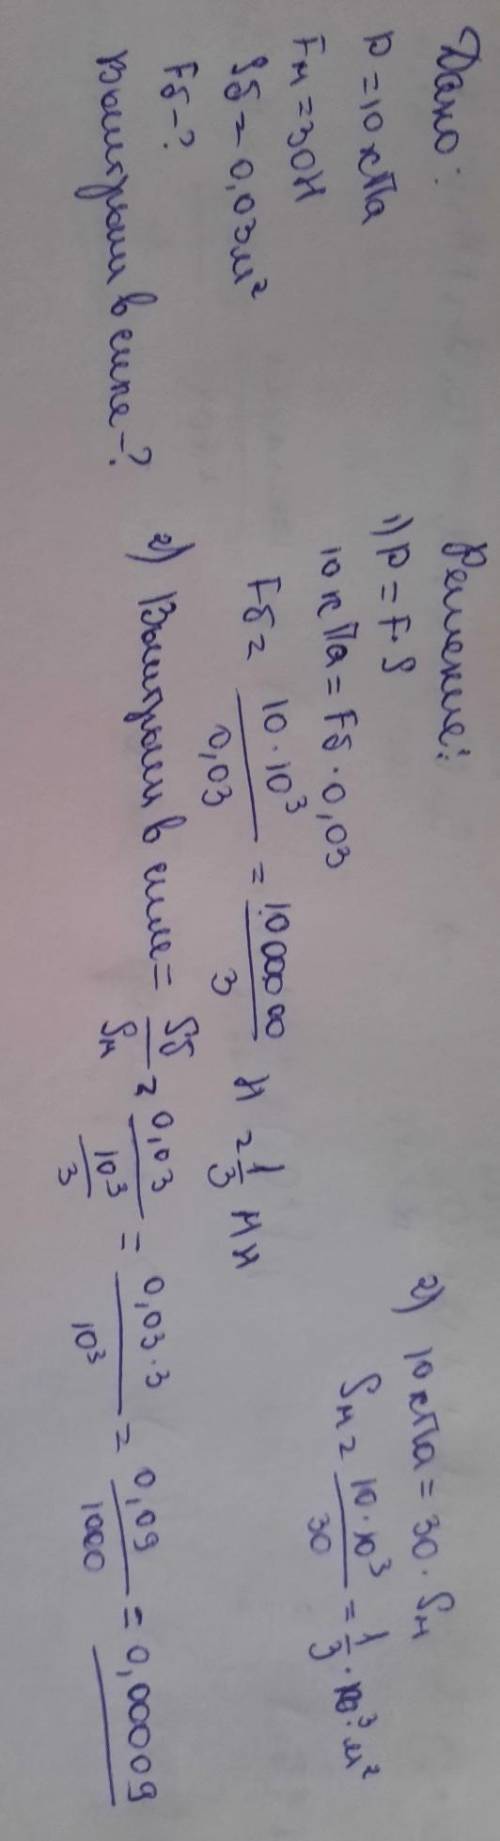 Дано:
p = 10 кПа
Fм = 30Н
Sб = 0,03м²
Fб - ?
Выигрыш в силе - ?
Решение:
1) p = F · S
10 кПа = Fб · 0,03
Fб = 10 · 10³ / 0,03 = 1000000 / 3 Н = 1/3 МН
2) 10кПа = 30 · Sм
Sм = 10 · 10³ / 30 = 1/3 · 10³ м²
2) Выигрыш в силе = Sб / Sм = 0,03 / (10³ / 3) = 0,03 · 3 / 10³ = 0,09 / 1000 = 0,00009